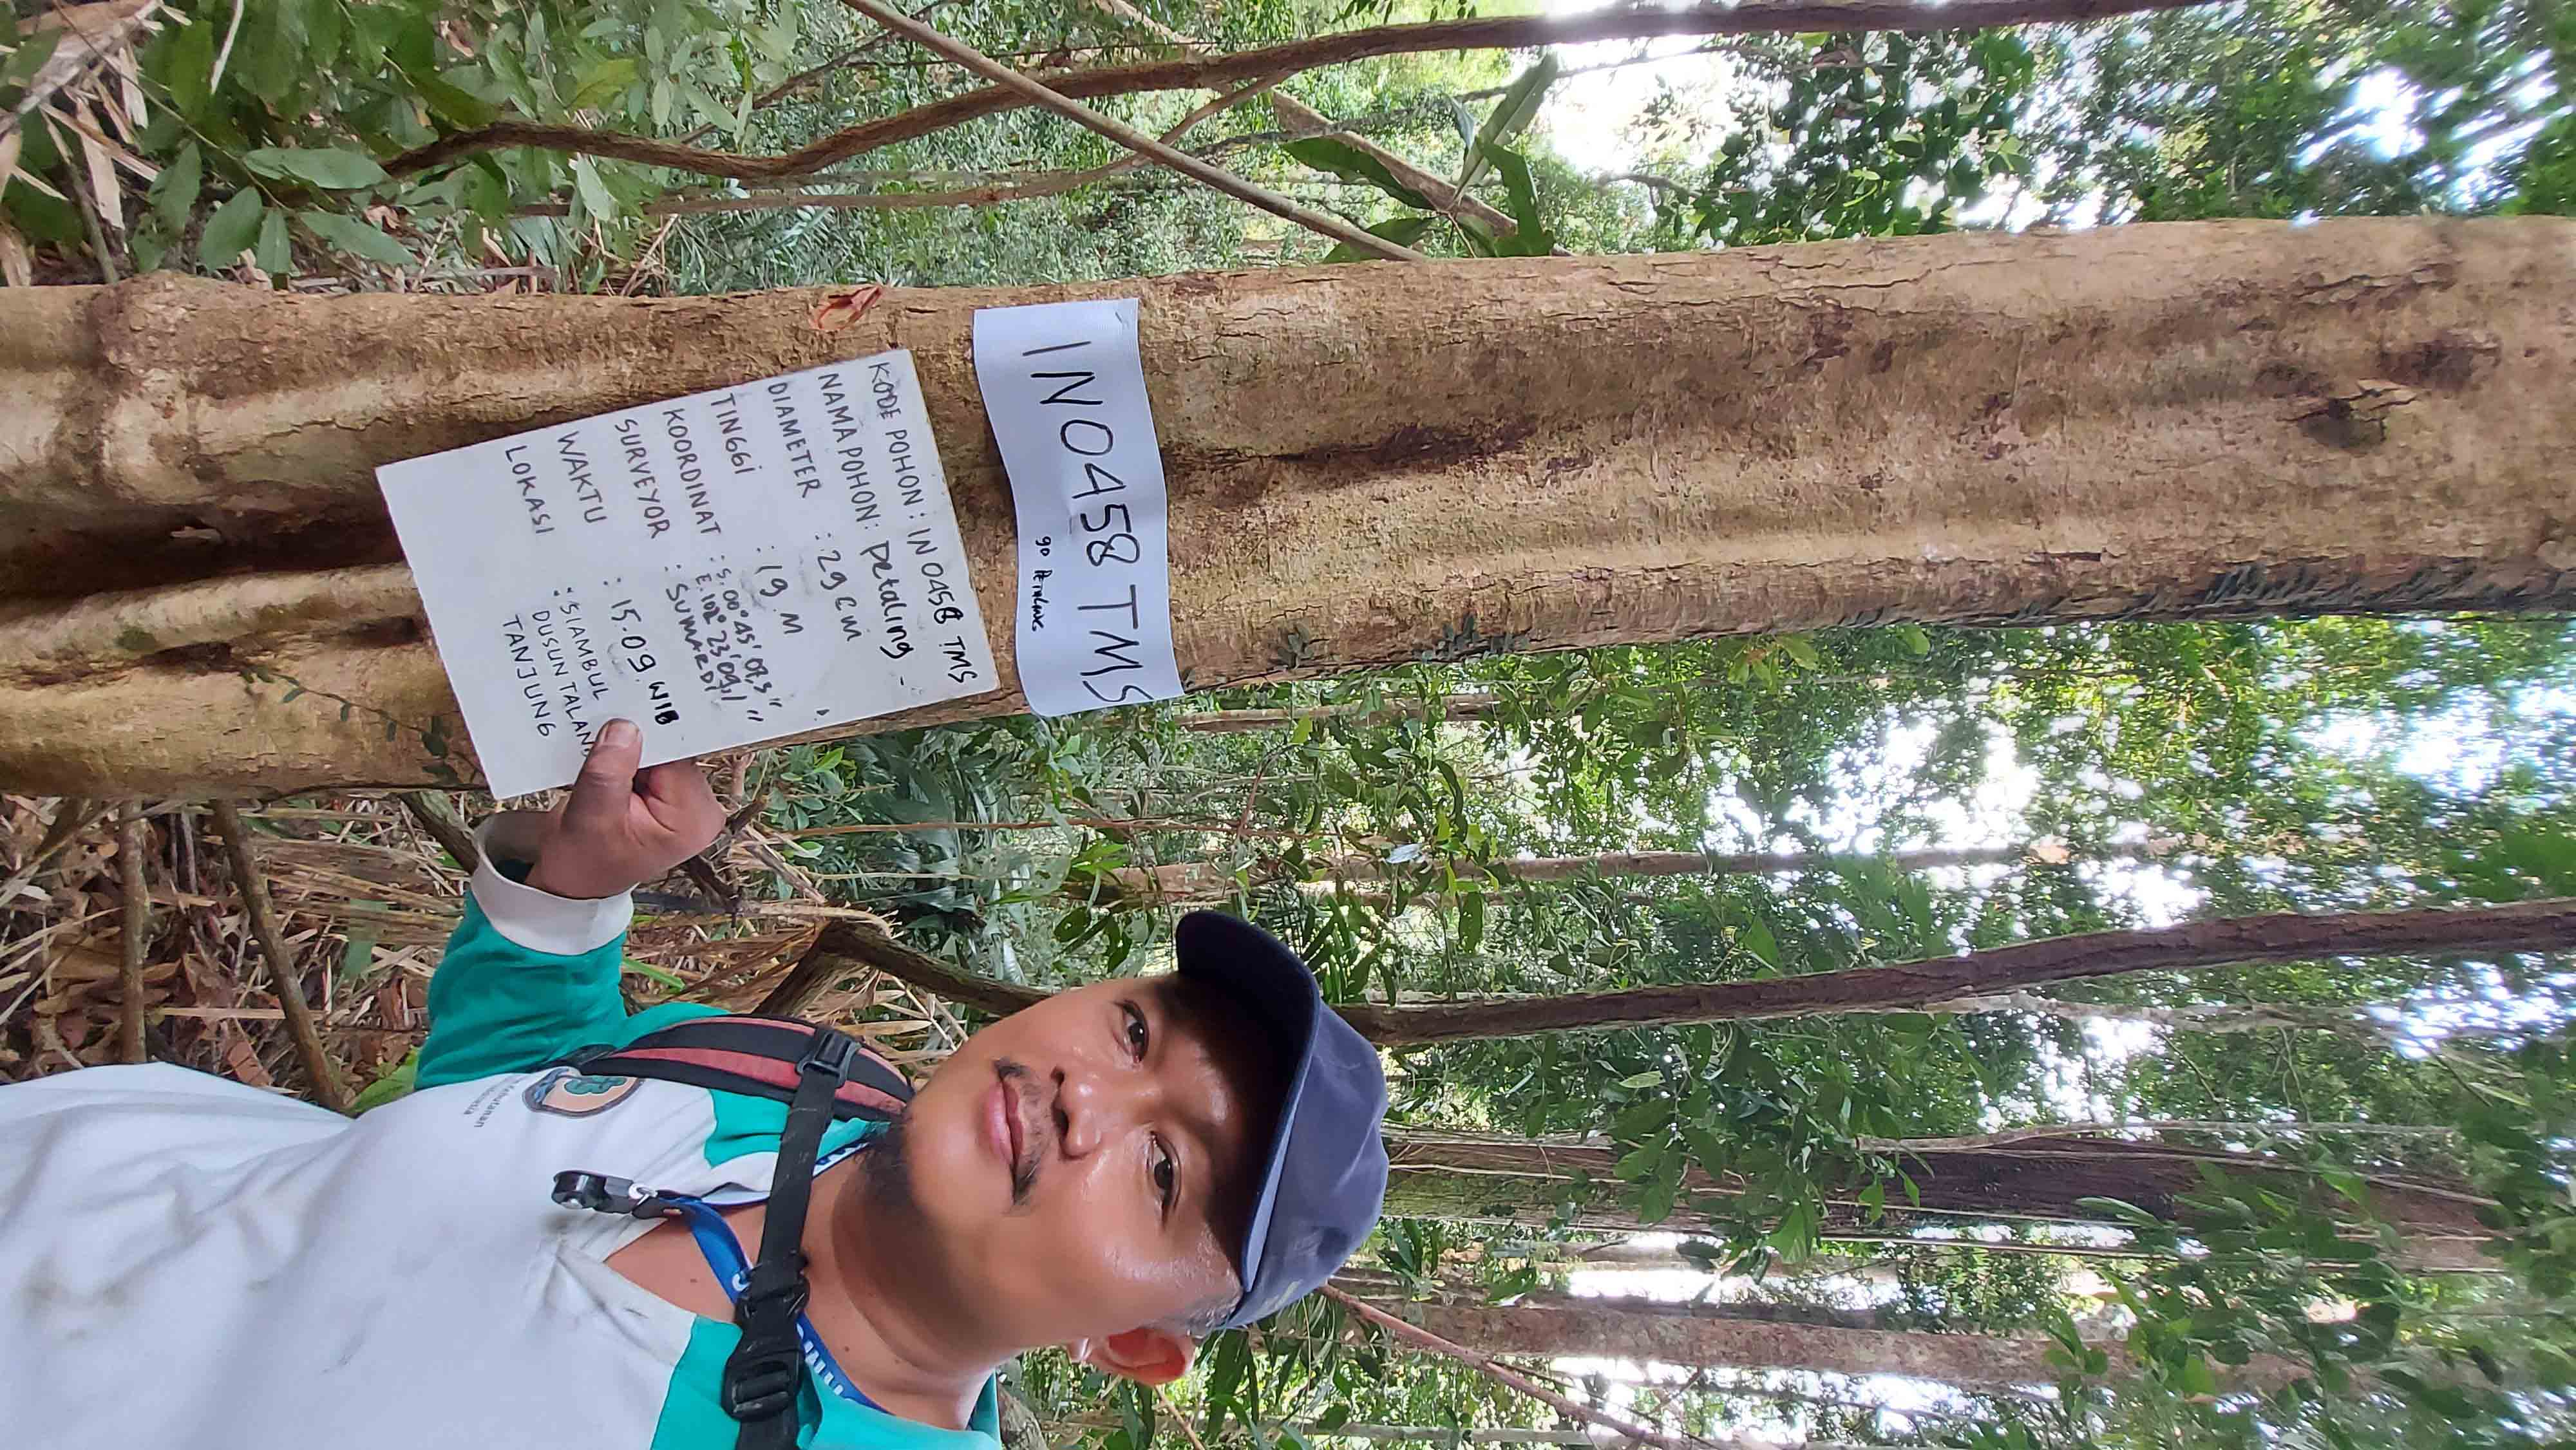 IN0458 TMS
90 PETALING
KODE POHON : IN 0458 TMS
NAMA POHON : petaling -
DIAMETER : 29 cm
TINGGI : 19 M
KOORDINAT : S. 00° 45' 07,3"
E. 102° 23' 09,1"
SURVEYOR : SUMARDI
WAKTU : 15.09 WIB
LOKASI : SIAMBUL
DUSUN TALANG
TANJUNG
Kehutanan